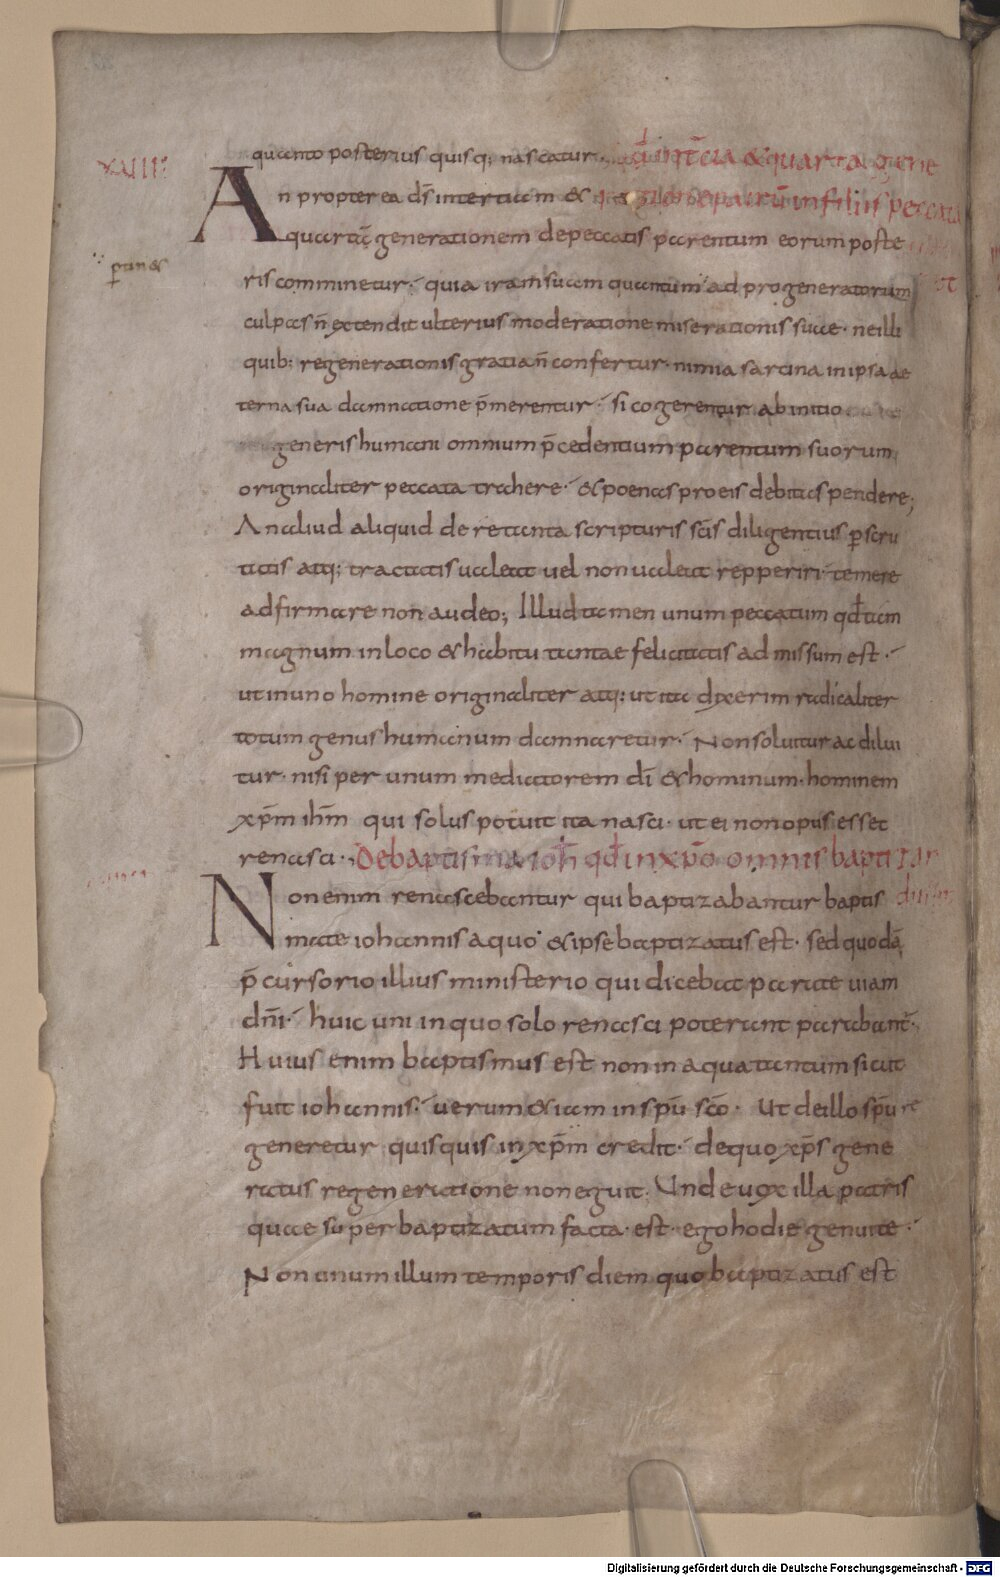 XLVIII
quanto posterius quisq; nascatur. qđ in tẽcia & quarta gene
An propterea d̄s intertiam &
patrũ infiliis peccata
quartã generationem depeccatis parentum eorum poste
pertin&
ris comminetur· quia iram suam quantum ad progeneratorum
culpas n̄ extendit ulterius moderatione miserationis suae· neilli
quib; regenerationis gratia n̄ confertur· nimia sarcina inipsa ae
terna sua damnatione p̄merentur· si cogerentur abinitio
generis humani omnium p̄cedentium parentum suorum
originaliter peccata trahere· & poenas proeis debitas pendere;
An aliud aliquid de re tanta scripturis sc̄is diligentius p̱scru
tatis atq; tractatis ualeat uel non ualeat repperiri· temere
adfirmare non audeo; Illud tamen unum peccatum qđ tam
magnum in loco & habitu tantae felicitatis admissum est·
ut in uno homine originaliter atq; ut ita dixerim radicaliter
totum genus humanum damnaretur· Non soluitur ac dilui
tur· nisi per unum mediatorem dī & hominum· hominem
xp̄m ih̄m qui solus potuit ita nasci· ut ei non opus esset
renasci· De baptisma ioħ qđ in xp̄o omnis baptizar
Non enim renascebantur qui baptizabantur baptis
mate iohannis a quo & ipse baptizatus est· sed quodã
p̄cursorio illius ministerio qui dicebat parate uiam
dn̄i· huic uni in quo solo renasci poterant parabant̄·
Huius enim baptismus est non in aqua tantum sicut
fuit iohannis· uerum & iam in sp̄u sc̄o· Ut deillo sp̄u re
generetur quisquis in xp̄m credit· dequo xp̄s gene
ratus regeneratione non eguit· Unde uox illa patris
quae super baptizatum facta est· ego hodie genui te·
Non unum illum temporis diem quo baptizatus est
Digitalisierung gefördert durch die Deutsche Forschungsgemeinschaft - DFG